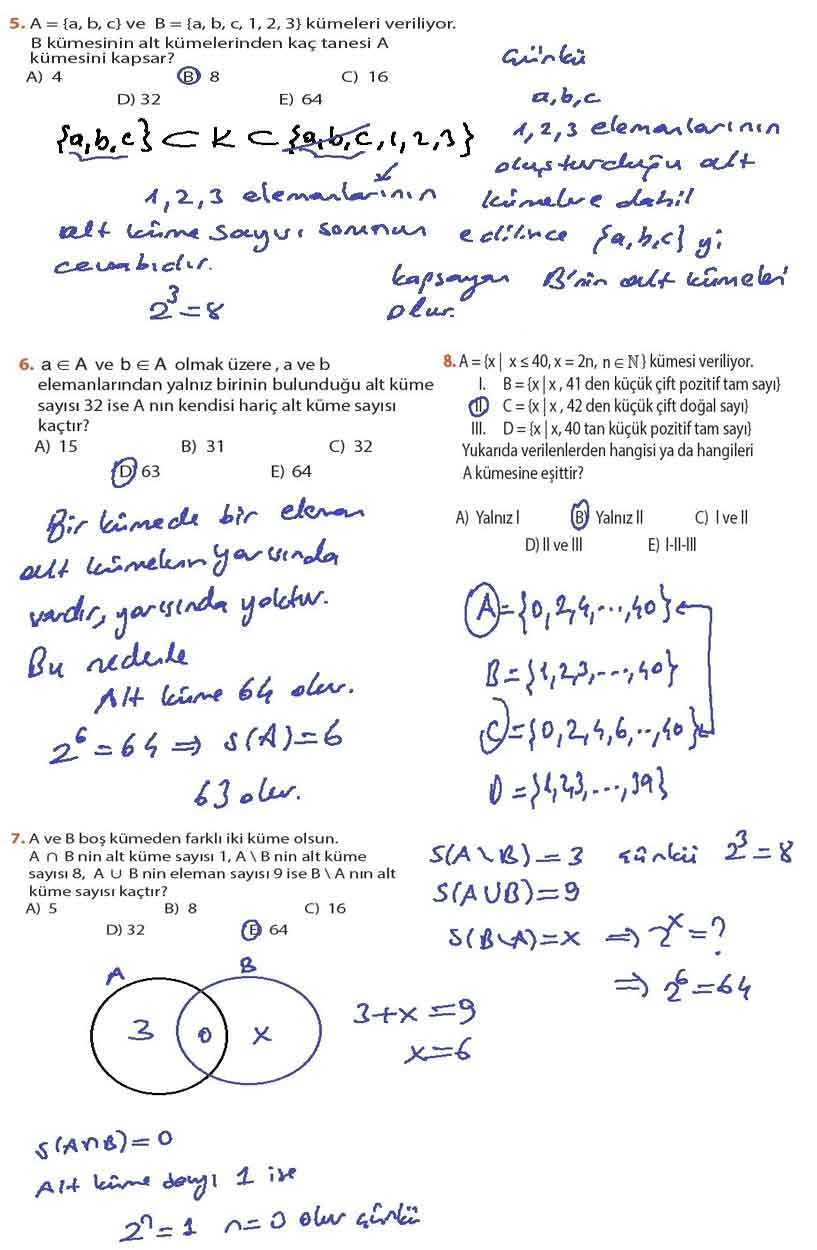 5. A = {a, b, c} ve B = {a, b, c, 1, 2, 3} kümeleri veriliyor.
B kümesinin alt kümelerinden kaç tanesi A
kümesini kapsar?
A) 4 B) 8 C) 16
D) 32 E) 64
{a,b,c} ⊂ K ⊂ {a,b,c,1,2,3}
1,2,3 elemanlarının
alt küme sayısı sorunun
cevabıdır.
2³=8
Çünkü
a,b,c
1,2,3 elemanlarının
oluşturduğu alt
kümelere dahil
edilince {a,b,c} yi
kapsayan B'nin alt kümeleri
olur.
6. a ∈ A ve b ∈ A olmak üzere , a ve b
elemanlarından yalnız birinin bulunduğu alt küme
sayısı 32 ise A nın kendisi hariç alt küme sayısı
kaçtır?
A) 15 B) 31 C) 32
D) 63 E) 64
Bir kümede bir eleman
alt kümelerin yarısında
vardır, yarısında yoktur.
Bu nedenle
Alt küme 64 olur.
2⁶=64 ⇒ s(A)=6
63 olur.
8. A = {x | x ≤ 40, x = 2n, n ∈ ℕ} kümesi veriliyor.
I. B = {x | x , 41 den küçük çift pozitif tam sayı}
II. C = {x | x , 42 den küçük çift doğal sayı}
III. D = {x | x, 40 tan küçük pozitif tam sayı}
Yukarıda verilenlerden hangisi ya da hangileri
A kümesine eşittir?
A) Yalnız I B) Yalnız II C) I ve II
D) II ve III E) I-II-III
A={0,2,4,...,40}
B={1,2,3,...,40}
C={0,2,4,6,..,40}
D={1,2,3,...,39}
7. A ve B boş kümeden farklı iki küme olsun.
A ∩ B nin alt küme sayısı 1, A \ B nin alt küme
sayısı 8, A ∪ B nin eleman sayısı 9 ise B \ A nın alt
küme sayısı kaçtır?
A) 5 B) 8 C) 16
D) 32 E) 64
S(A\B)=3 çünkü 2³=8
S(A∪B)=9
S(B\A)=x ⇒ 2ˣ=?
⇒ 2⁶=64
A B
3 0 x
3+x=9
x=6
S(A∩B)=0
Alt küme 1 ise
2ⁿ=1 n=0 olur çünkü